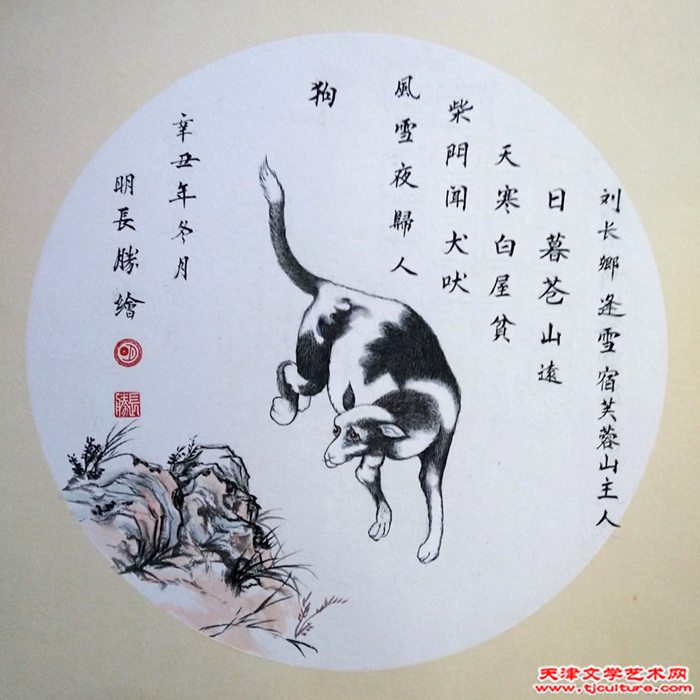 刘长鄉逢雪宿芙蓉山主人
日暮苍山遠
天寒白屋貧
柴門闻犬吠
風雪夜歸人
狗
辛丑年冬月
明長勝繪
明
長勝
天津文学艺术网
www.tjculture.com